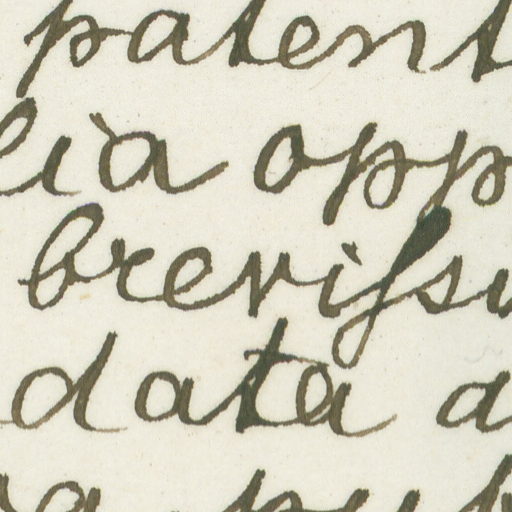 patent
lia opp
breviſsi
data a